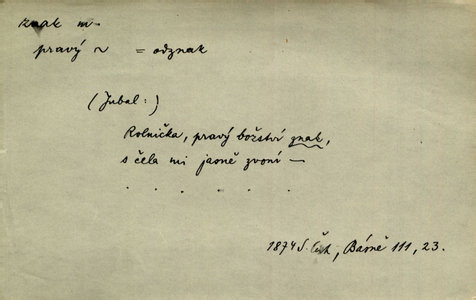 znak m.
pravý ~ = odznak
(Jubal:)
Rolnička, pravý božství znak,
s čela mi jasně zvoní —
. . . . . .
1874 S. Čch, Básně 111, 23.